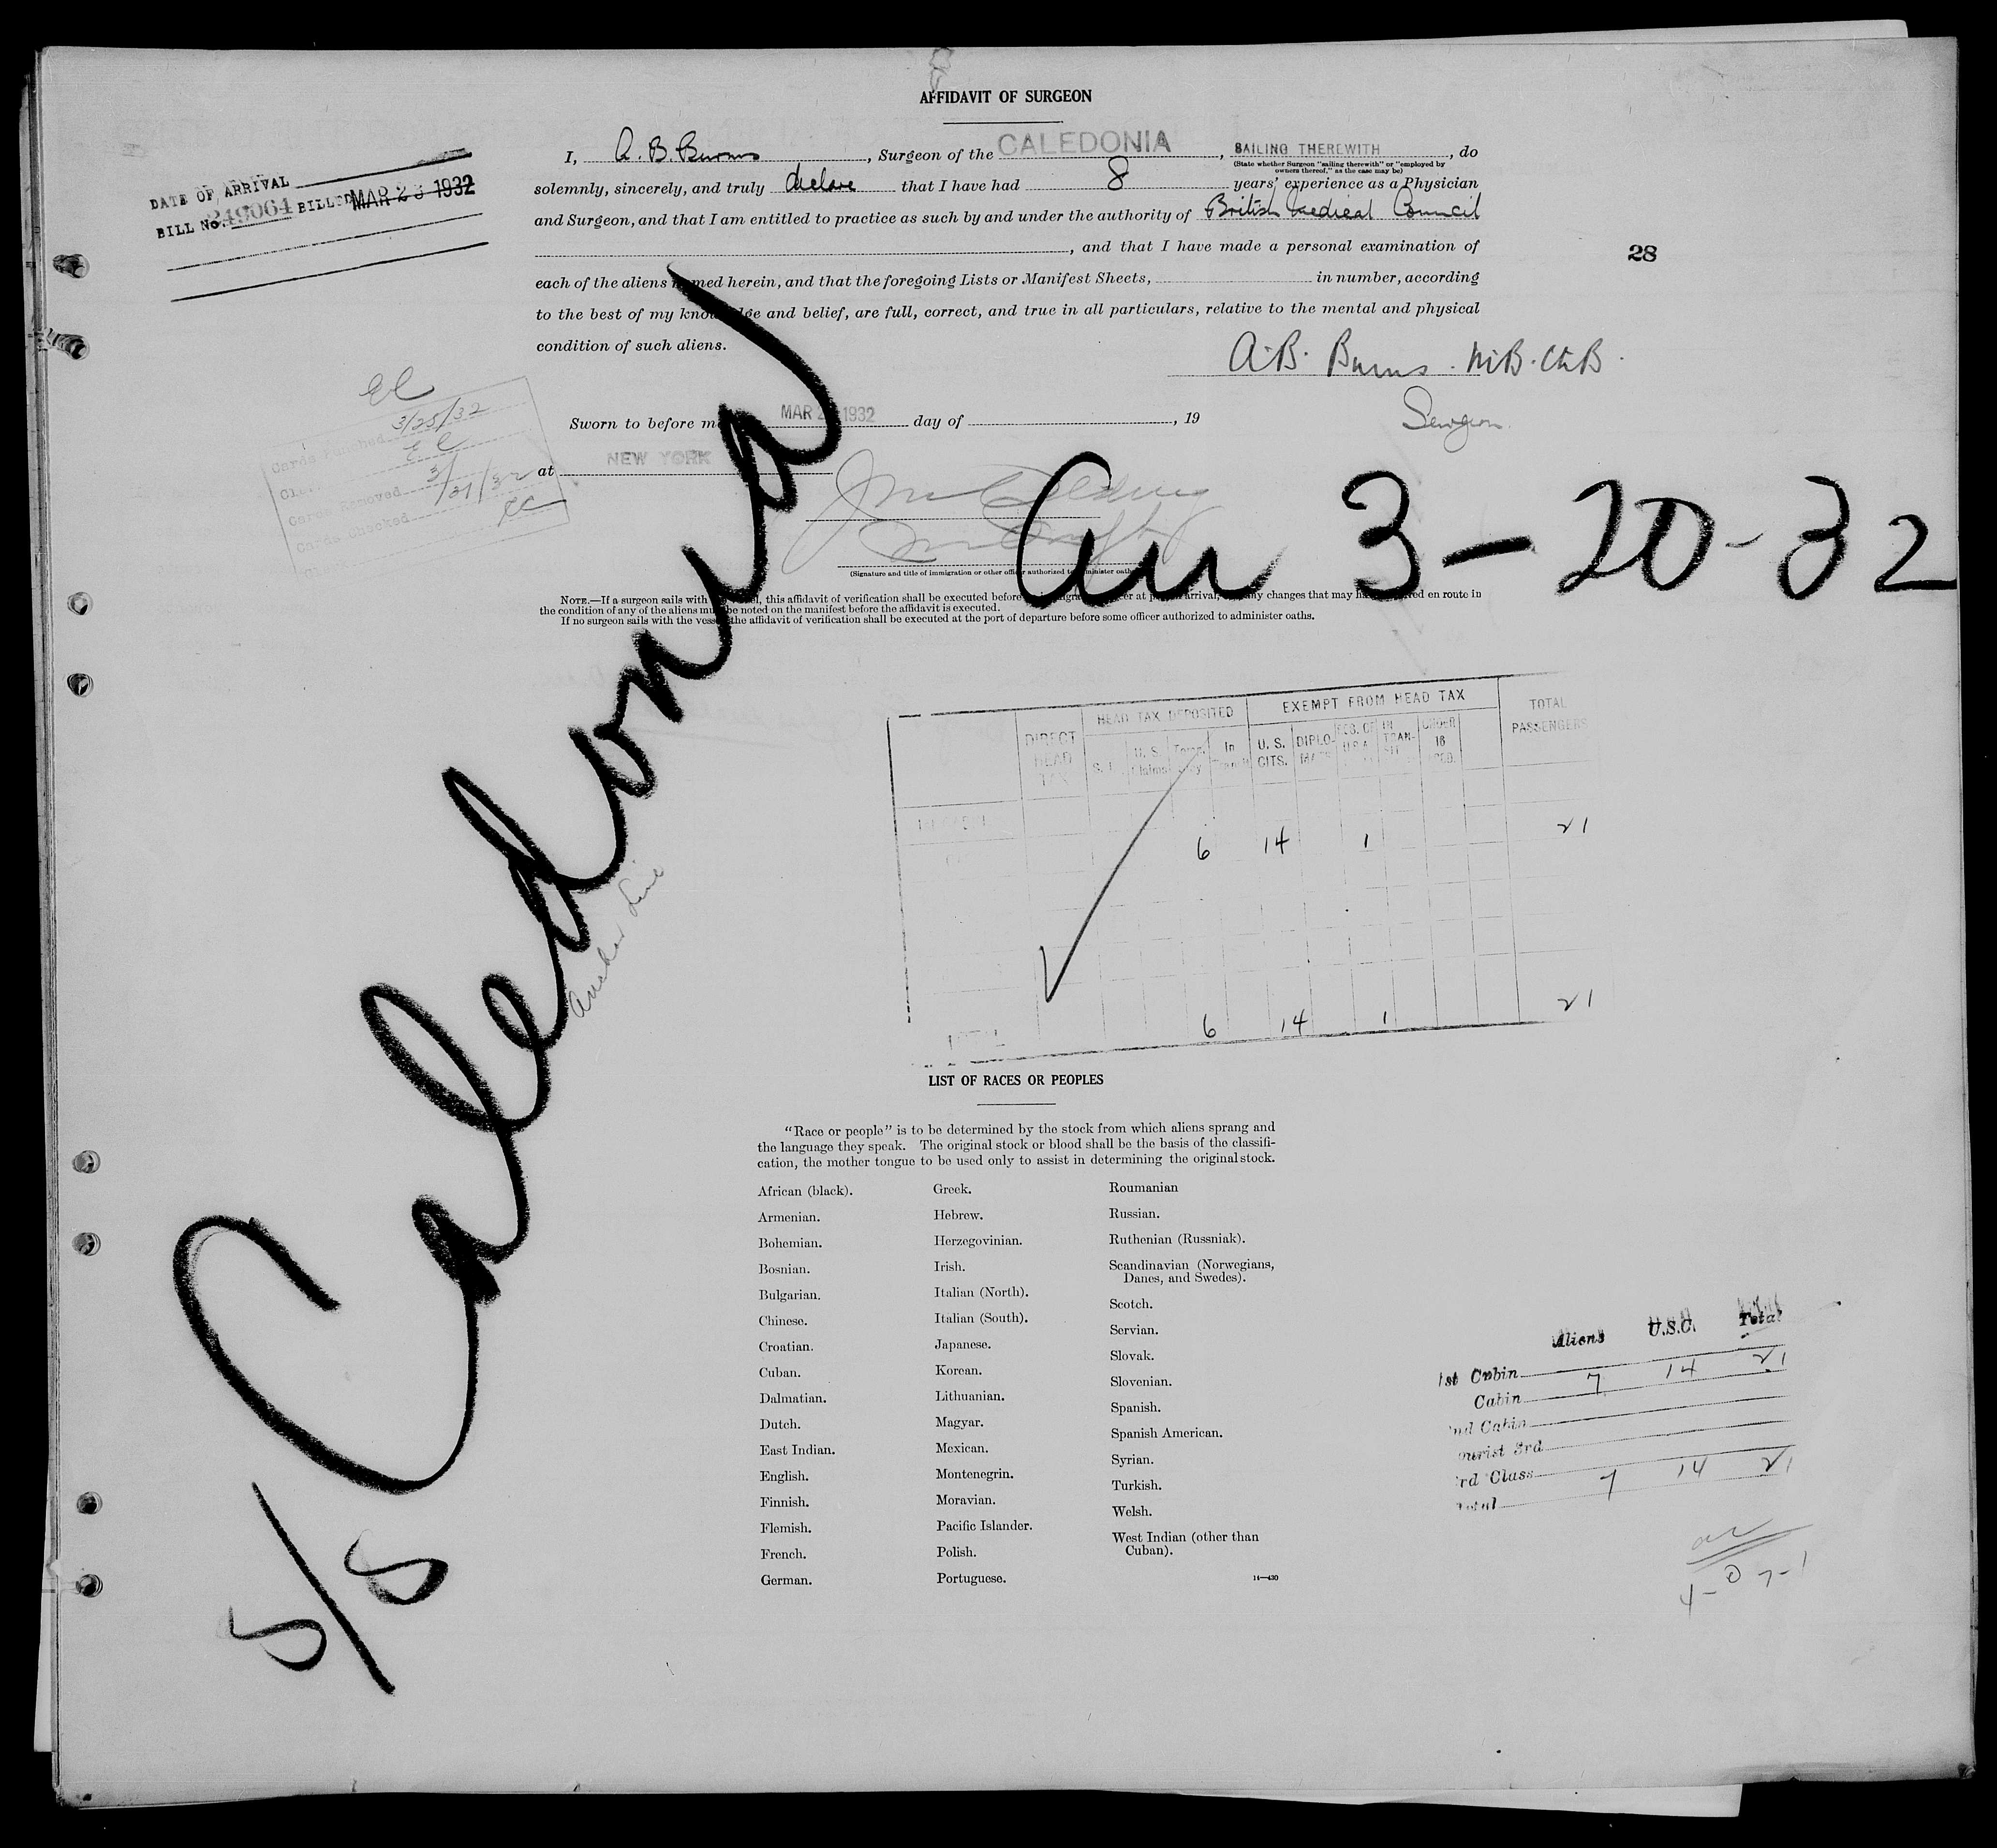 AFFIDAVIT OF SURGEON
I, A. B. Burns, Surgeon of the CALEDONIA, SAILING THEREWITH, do
(State whether Surgeon "sailing therewith" or "employed by
owners thereof," as the case may be)
solemnly, sincerely, and truly declare that I have had 8 years' experience as a Physician
and Surgeon, and that I am entitled to practice as such by and under the authority of British Medical Council
, and that I have made a personal examination of
each of the aliens named herein, and that the foregoing Lists or Manifest Sheets, in number, according
to the best of my knowledge and belief, are full, correct, and true in all particulars, relative to the mental and physical
condition of such aliens.
DATE OF ARRIVAL
BILL No. 249064 BILLED MAR 23 1932
28
A. B. Burns. M.B. Ch.B.
Surgeon
Sworn to before me MAR 2 1932 day of , 19
at NEW YORK
El
Cards Punched 3/25/32
El
Cards Removed 3/21/32
Cards Checked EC
(Signature and title of immigration or other officer authorized to administer oaths)
Arr 3-20-32
NOTE.—If a surgeon sails with , this affidavit of verification shall be executed before at arrival, any changes that may en route in
the condition of any of the aliens must be noted on the manifest before the affidavit is executed.
If no surgeon sails with the vessel the affidavit of verification shall be executed at the port of departure before some officer authorized to administer oaths.
S/S Caledonia
Anchor Line
HEAD TAX DEPOSITED EXEMPT FROM HEAD TAX TOTAL PASSENGERS
DIRECT HEAD TAX U. S. Claims In U. S. CITS. DIPLO- RES. OF U.S.A. IN TRAN- SIT UNDER 16
6 14 1 21
6 14 1 21
LIST OF RACES OR PEOPLES
"Race or people" is to be determined by the stock from which aliens sprang and
the language they speak. The original stock or blood shall be the basis of the classifi-
cation, the mother tongue to be used only to assist in determining the original stock.
African (black).
Armenian.
Bohemian.
Bosnian.
Bulgarian.
Chinese.
Croatian.
Cuban.
Dalmatian.
Dutch.
East Indian.
English.
Finnish.
Flemish.
French.
German.
Greek.
Hebrew.
Herzegovinian.
Irish.
Italian (North).
Italian (South).
Japanese.
Korean.
Lithuanian.
Magyar.
Mexican.
Montenegrin.
Moravian.
Pacific Islander.
Polish.
Portuguese.
Roumanian
Russian.
Ruthenian (Russniak).
Scandinavian (Norwegians,
Danes, and Swedes).
Scotch.
Servian.
Slovak.
Slovenian.
Spanish.
Spanish American.
Syrian.
Turkish.
Welsh.
West Indian (other than
Cuban).
14—430
Aliens U.S.C. Total
1st Cabin 7 14 21
Cabin
2nd Cabin
Tourist 3rd
3rd Class 7 14 21
Total